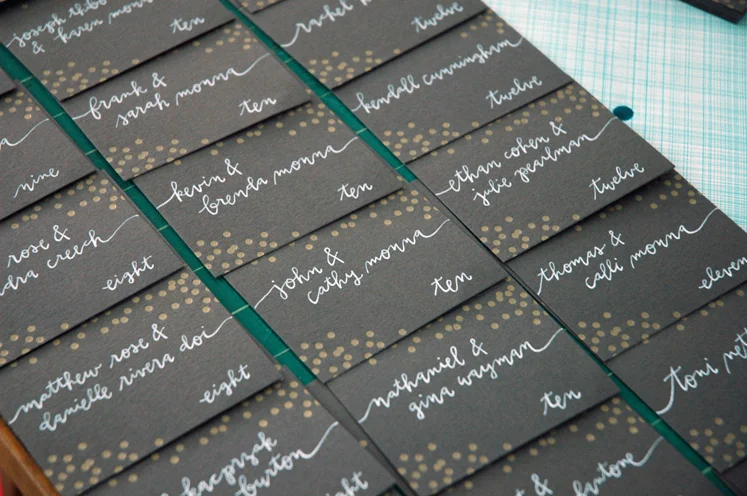 nine
rose &
creech
eight
matthew rose &
danielle rivera doi
eight
burton
joseph
& karen monna
ten
frank &
sarah monna
ten
kevin &
brenda monna
ten
john &
cathy monna
ten
nathaniel &
gina wayman
ten
&
rachel
twelve
kendall cunningham
twelve
ethan cohen &
julie pearlman
twelve
thomas &
calli monna
eleven
toni